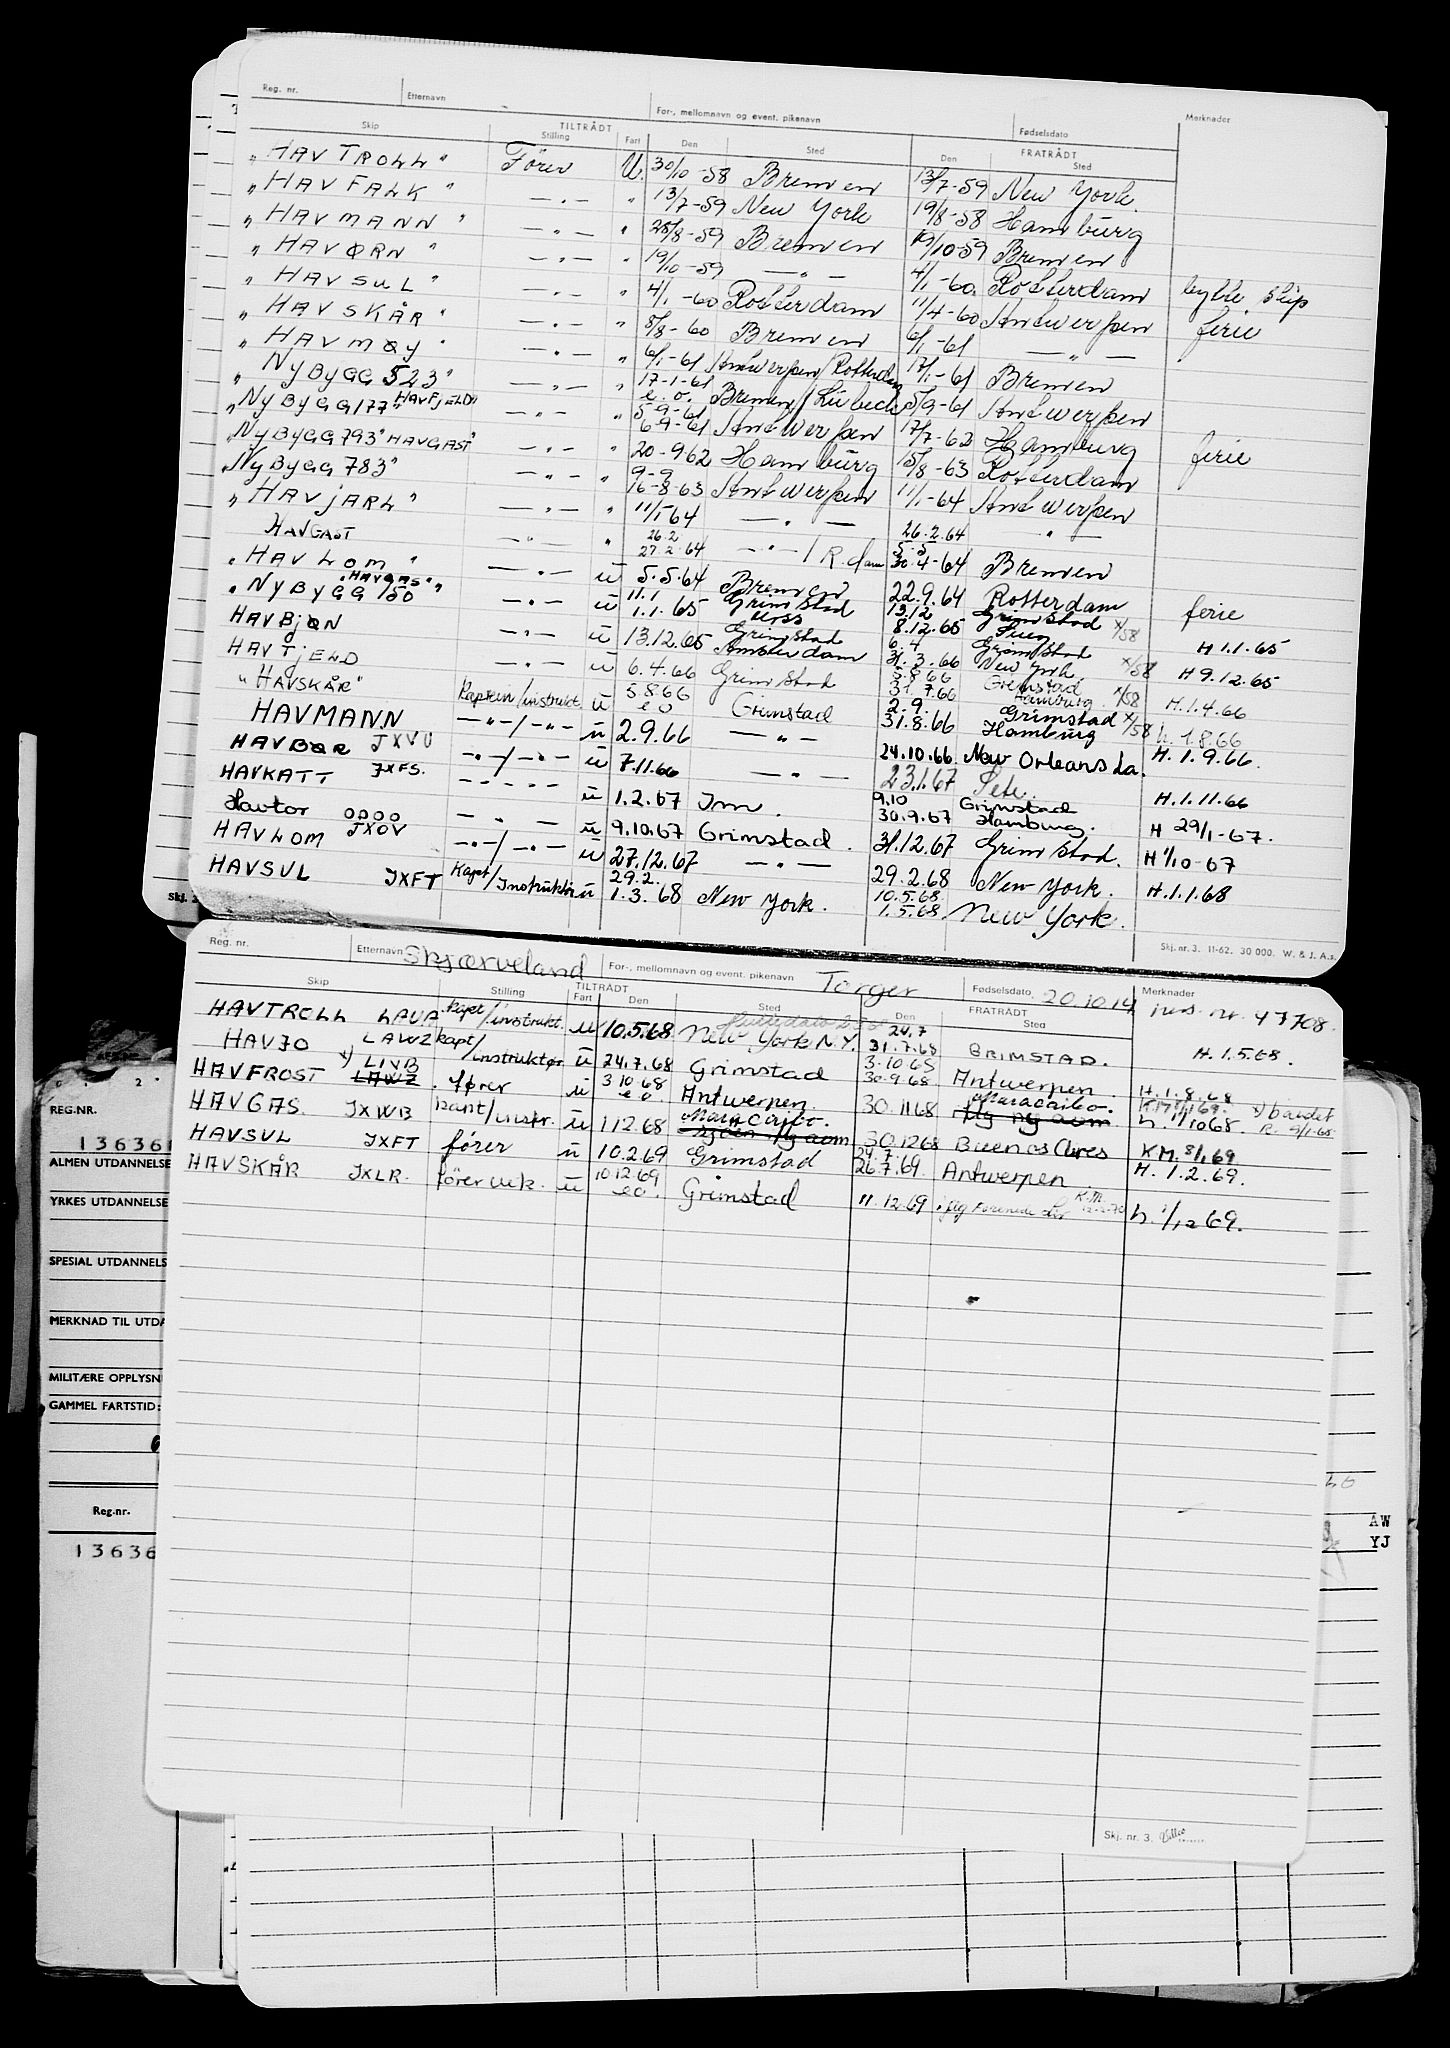 Reg. nr. Etternavn For-, mellomnavn og event. pikenavn Fødselsdato Merknader
Skip TILTRÅDT Stilling Fart Den Sted FRATRÅDT Den Sted
"HAVTROLL" Fører U. 30/10-58 Bremen 13/7-59 New York.
"HAVFALK" —"— " 13/7-59 New York 19/8-58 Hamburg
"HAVMANN" —"— " 28/8-59 Bremen 19/10-59 Bremen
"HAVØRN" —"— " 19/10-59 —"— 4/1-60 Rotterdam bytte skip
"HAVSUL" —"— " 4/1-60 Rotterdam 11/4-60 Antwerpen ferie
"HAVSKÅR" —"— " 8/8-60 Bremen 6/1-61 —"—
"HAVMØY" —"— " 6/1-61 Antwerpen/Rotterdam 17/1-61 Bremen
"NYBYGG 523" —"— " 17-1-61 e.o. Bremen/Lübeck 5/9-61 Antwerpen
"NYBYGG 177" "HAVFJELD" —"— " 5-9-61 6-9-61 Antwerpen 17/7-62 Hamburg ferie
"NYBYGG 793" HAVGAST" —"— " 20-9 62 Hamburg 15/8-63 Rotterdam
"NYBYGG 783" —"— " 9-9 16-8-63 Antwerpen 11/1-64 Antwerpen
"HAVJARL" —"— " 11/1-64 —"— 26.2.64 "
HAVGAST —"— " 26.2 27.2.64 —"—/R.dam 5.5 30.4-64 Bremen
"HAVLOM" —"— ū 5.5.64 Bremen 22.9.64 Rotterdam ferie
"NYBYGG 150" "HAVGAS" —"— ū 11.1 1.1.65 Grimstad 13.12 8.12.65 Grimstad x/58 H 1.1.65
HAVBJØN —"— ū 13.12.65 Grimstad Amsterdam 6.4 31.3.66 Grimstad New York x/58 H 9.12.65
HAVTJELD —"— ū 6.4.66 Grimstad 5.8.66 31.7.66 Grimstad Hamburg x/58 H.1.4.66
"HAVSKÅR" Kaptein/instrukt. ū 5.8.66 eo Grimstad 2.9. 31.8.66 Grimstad Hamburg x/58 h. 1.8.66
HAVMANN JXVU —"—/—"— ū 2.9.66 —"— 24.10.66 New Orleans La. H. 1.9.66.
HAVBØR JXFS. —"—/—"— ū 7.11.66 —"— 23.1.67 H.1.11.66
HAVKATT ū 1.2.67 9.10 30.9.67 Grimstad Hamburg. H 29/1-67.
Havtor oooo —"— ū 9.10.67 Grimstad. 31.12.67 Grimstad. H 1/10-67
HAVLOM JXOV —"—/—"— ū 27.12.67 —"— 29.2.68 New York. H.1.1.68
HAVSUL JXFT Kapt/Instruktør ū 29.2. 1.3.68 New York. 10.5.68. 1.5.68 New York.
Skj. nr. 3. 11-62. 30 000. W. & J. A.s.
Reg. nr. Etternavn Skjærveland For-, mellomnavn og event. pikenavn Torger Fødselsdato 20.10.14 Merknader nr. 47708.
Skip TILTRÅDT Stilling Fart Den Sted FRATRÅDT Den Sted
HAVTROLL kapt/instrukt. ū 10.5.68 New York N.Y. 24.7 31.7.68 GRIMSTAD. H.1.5.68.
HAVJO LAWZ kapt/instruktør ū 24.7.68 Grimstad 3.10.68 30.9.68 Antwerpen H.1.8.68
HAVFROST x) LIVB LAWZ fører ū 3.10.68 eo Antwerpen. 30.11 68 Maracaibo. h. 1/10 68
HAVGAS. JXWB kapt/instr. ū 1 12.68 Maracaibo. 30.12 68 Buenos Aires KM. 8/1 69
HAVSUL JXFT fører ū 10.2.69 Grimstad 24.7. 26.7.69. Antwerpen. H. 1.2.69.
HAVSKÅR JXLR. fører vik. ū 10.12.69 eo. Grimstad 11.12.69 K.M. 12-2-70 h. 1/12 69.
Skj. nr. 3.
REG.NR.
13636
ALMEN UTDANNELSE
YRKES UTDANNELSE
SPESIAL UTDANNELS
MERKNAD TIL UTDA
MILITÆRE OPPLYSN
GAMMEL FARTSTID:
Reg.nr.
13636
AW
YJ